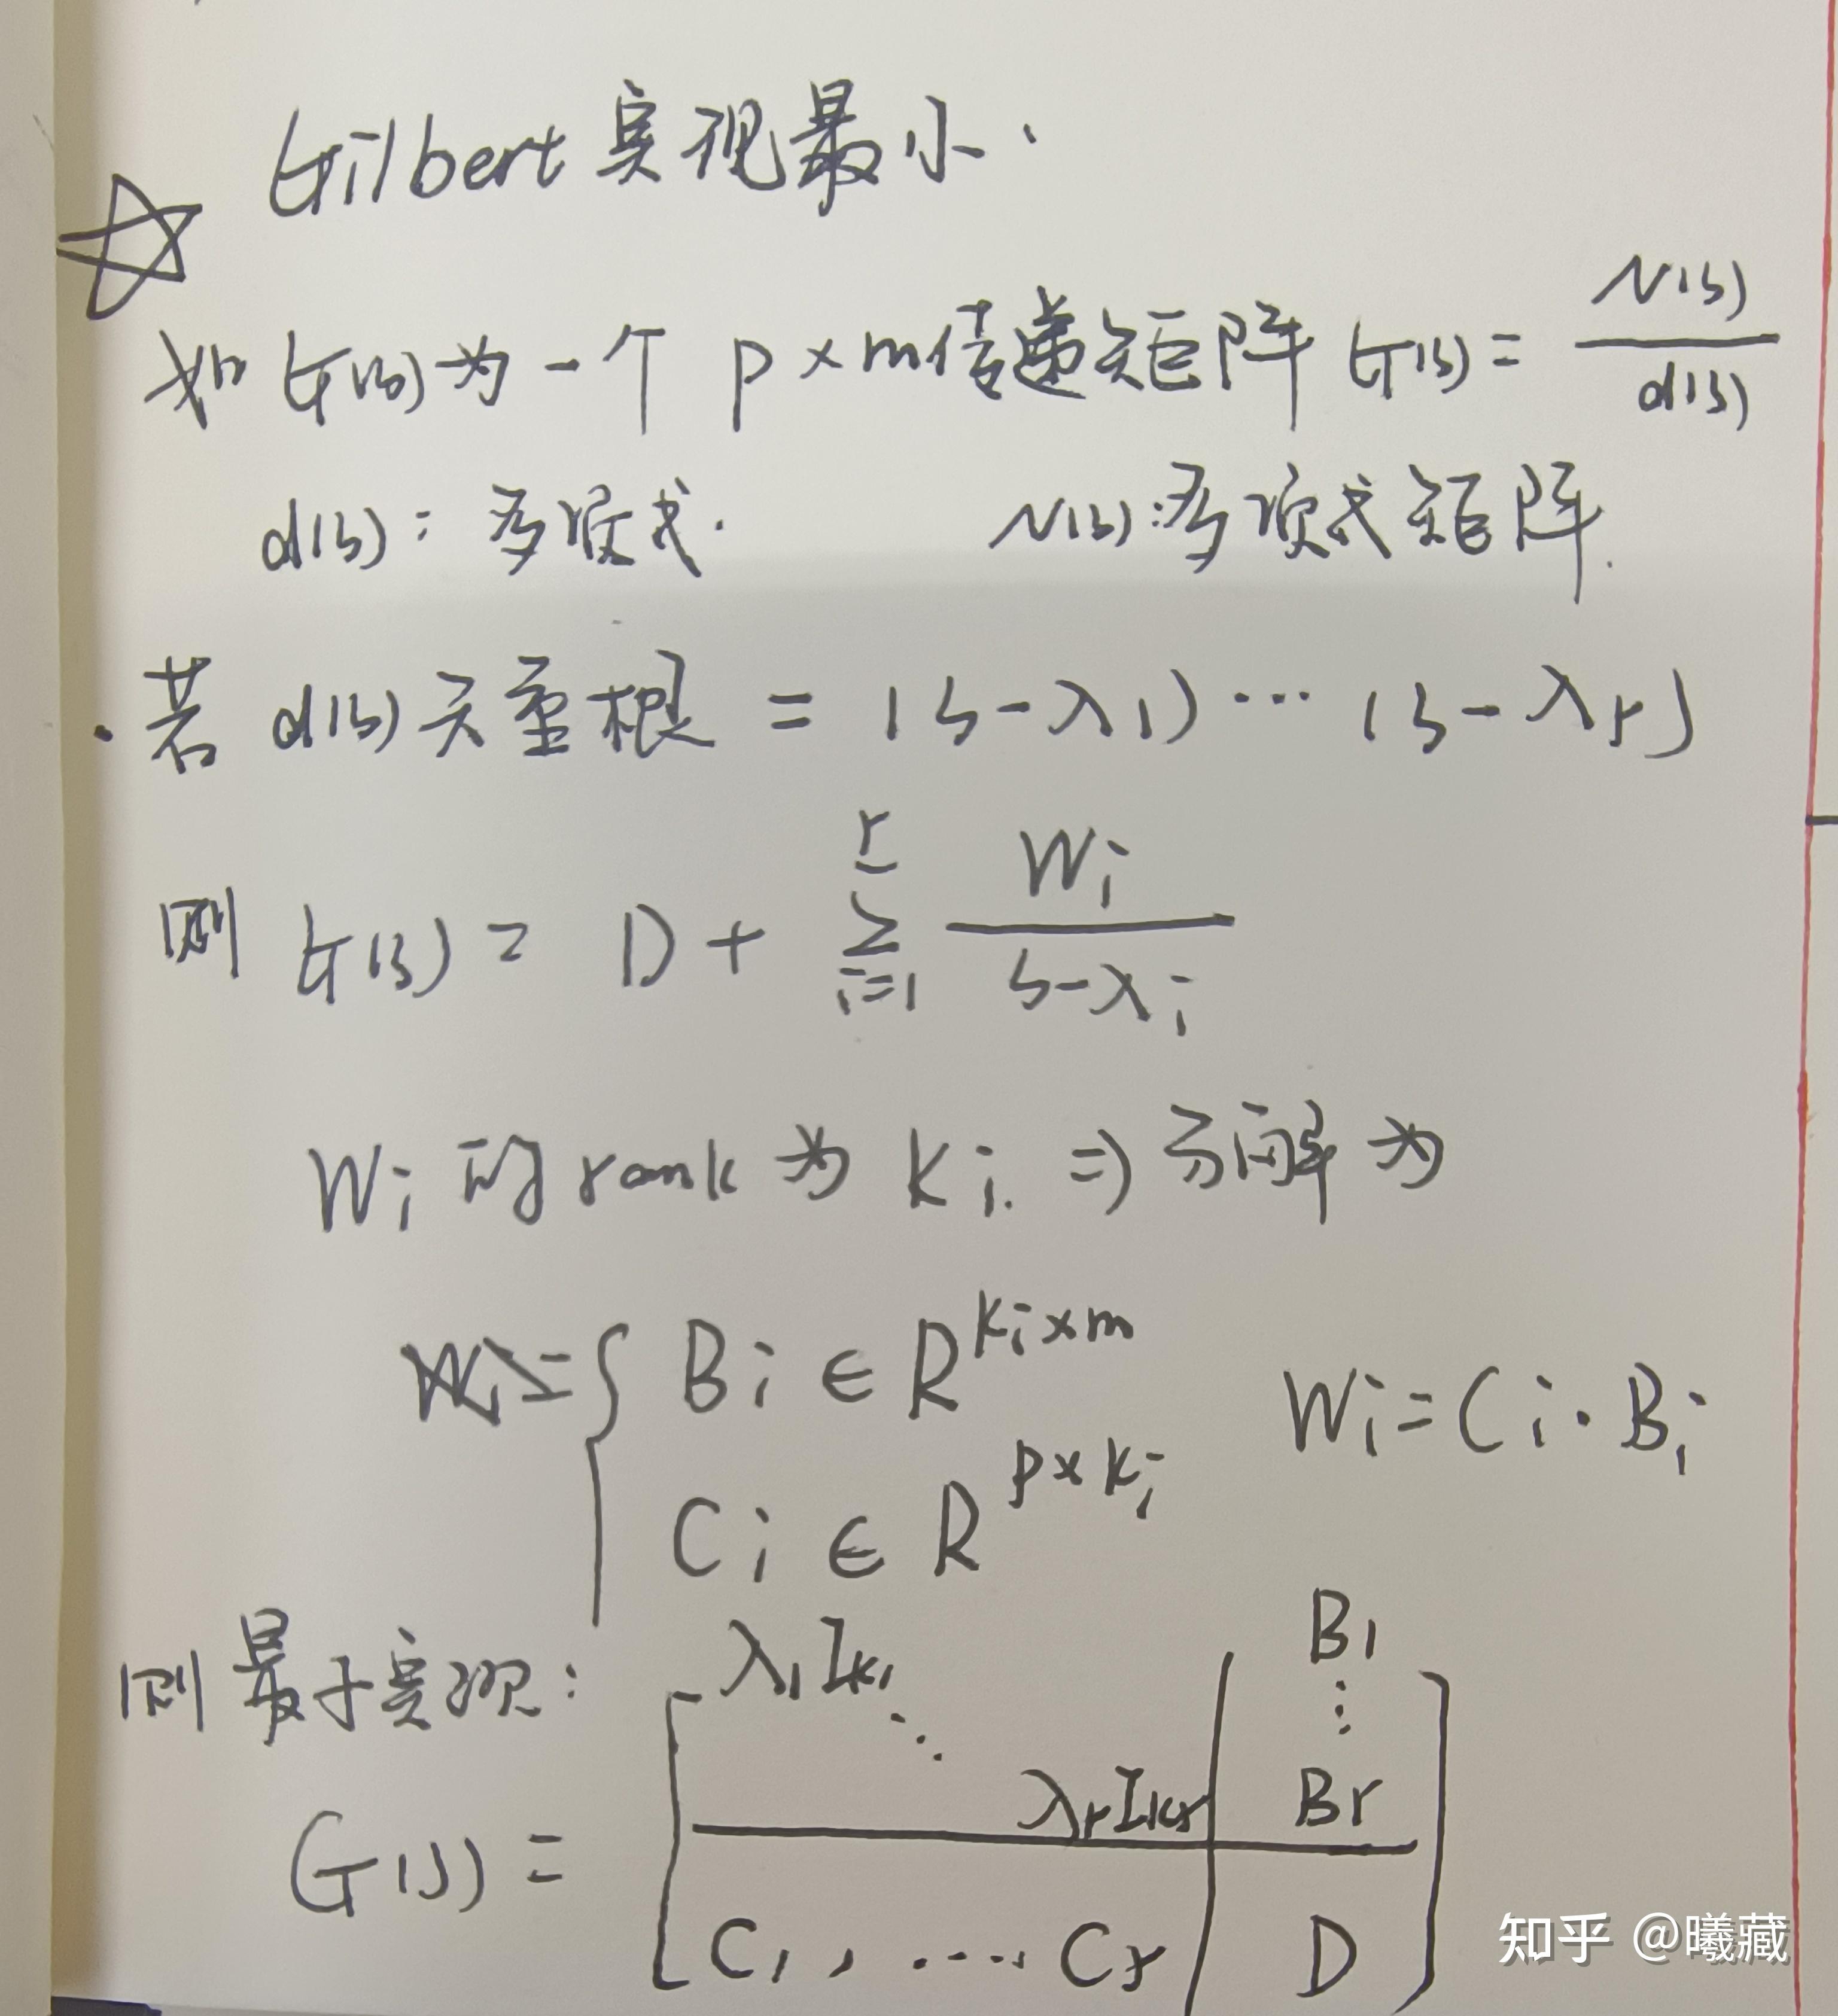 Gilbert 实现最小.
如 G(s) 为一个 p×m 传递矩阵 G(s) = N(s) / d(s)
d(s): 多项式. N(s): 多项式矩阵.
· 若 d(s) 无重根 = (s-λ1) ··· (s-λr)
则 G(s) = D + Σ_{i=1}^{r} Wi / (s-λi)
Wi 的 rank 为 Ki. ⇒ 分解为
{ Bi ∈ R^{Ki×m}
Wi = Ci · Bi
Ci ∈ R^{p×Ki}
则最小实现:
G(s) = [ λ1Ik1 ⋱ λrIkr | B1 ⋮ Br
C1, ···· Cr | D ]
知乎 @曦藏